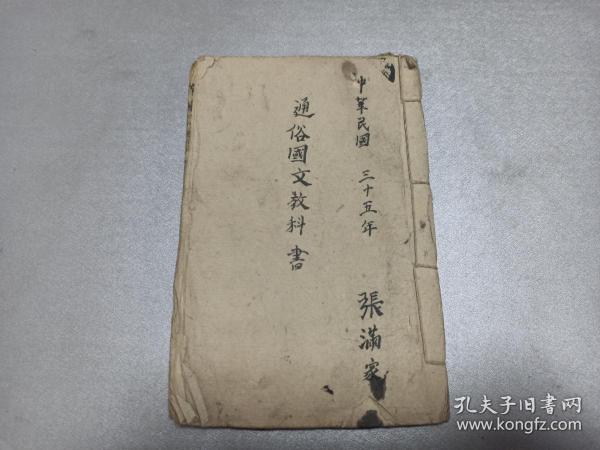 中華民國 三十五年
張滿家
通俗國文教科書
孔夫子旧书网
www.kongfz.com